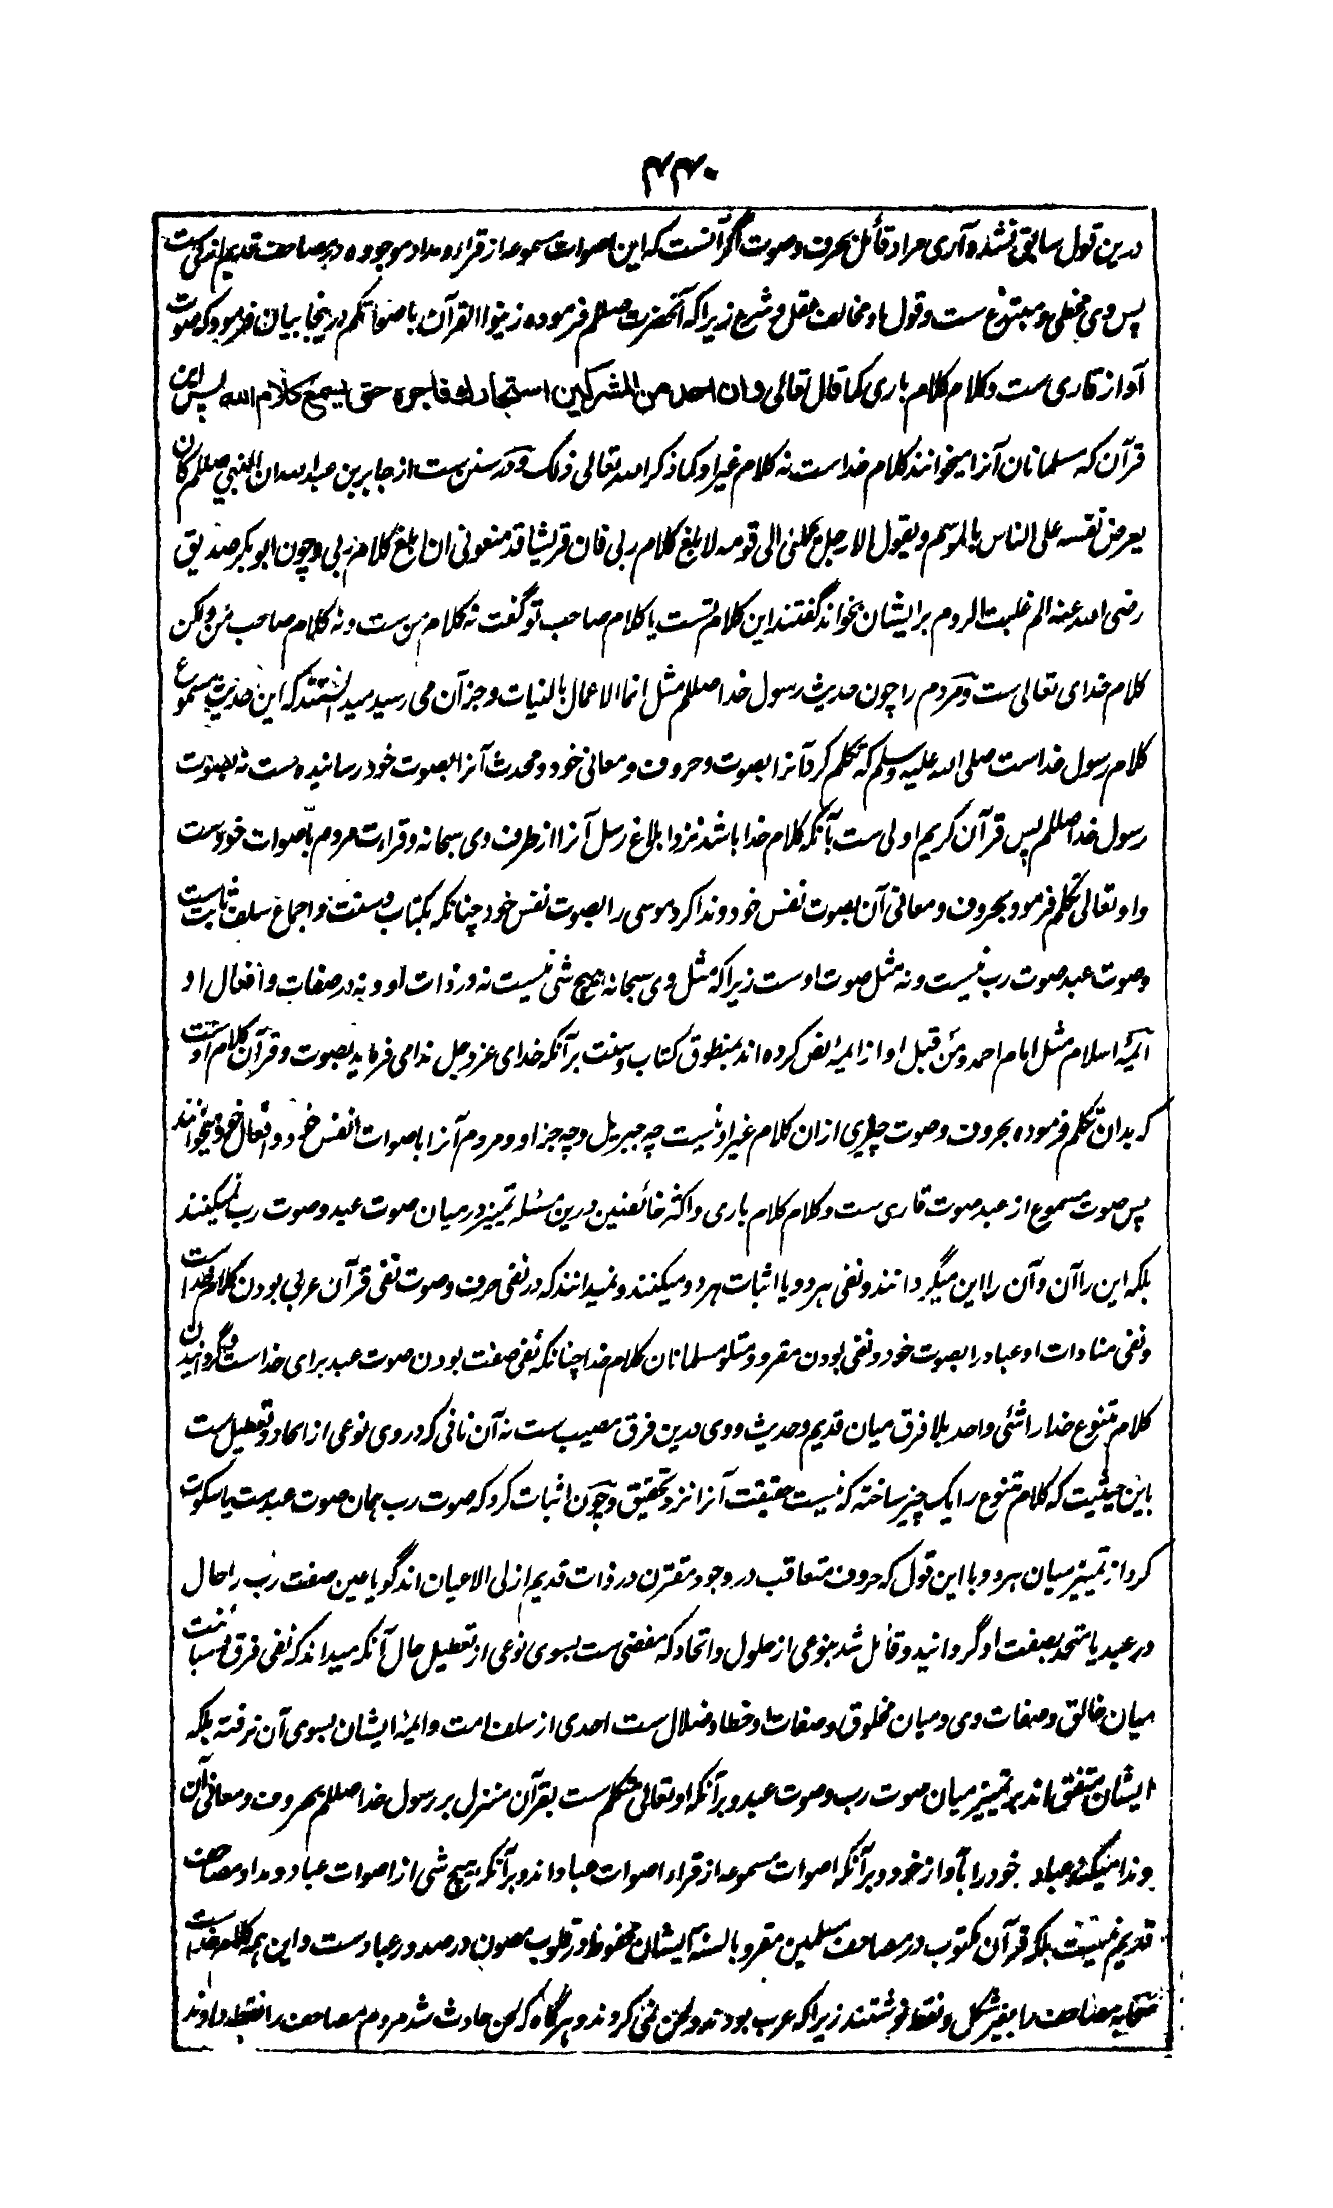 ۴۴۰
درین قول سابق نشده آری مراد قائل بحرف و صوت اگر آنست که این اصوات مسموعه از قراء و مداد موجوده در مصاحف قدیم ازلی ست
پس وی مخطی و مبتدع ست و قول او مخالف عقل و شرع زیرا که آنحضرت صللم فرموده زینوا القرآن باصواتکم درینجا بیان فرمود که صوت
آواز قاری ست و کلام کلام باری کما قال تعالی وان احد من المشرکین استجارك فاجره حتی یسمع کلام الله پس این
قرآن که مسلمانان آنرا میخوانند کلام خداست نه کلام غیر او کما ذکر الله تعالی ذلک و در سنن ست از جابر بن عبدالله ان النبی صللم کان
یعرض نفسه علی الناس بالموسم و یقول الا رجل یحملنی الی قومه لابلغ کلام ربی فان قریشا قد منعونی ان ابلغ کلام ربی و چون ابو بکر صدیق
رضی الله عنه الم غلبت الروم بر ایشان بخواند گفتند این کلام تست یا کلام صاحب تو گفت نه کلام من ست و نه کلام صاحب من ولکن
کلام خدای تعالی ست و مردم را چون حدیث رسول خدا صللم مثل انما الاعمال بالنیات و جز آن می رسید میدانستند که این حدیث مسموع
کلام رسول خداست صلی الله علیه وسلم که تکلم کرد آنرا بصوت و حروف و معانی خود و محدث آنرا بصوت خود رسانیده ست نه بصوت
رسول خدا صللم پس قرآن کریم اولی ست بآنکه کلام خدا باشد نزد ابلاغ رسل آنرا از طرف وی سبحانه و قراءت مردم باصوات خودست
و او تعالی تکلم فرمود بحروف و معانی آن بصوت نفس خود و ندا کرد موسی را بصوت نفس خود چنانکه بکتاب و سنت و اجماع سلف ثابت ست
و صوت عبد صوت رب نیست و نه مثل صوت اوست زیرا که مثل وی سبحانه هیچ شی نیست نه در ذات او و نه در صفات و افعال او
ائمهٔ اسلام مثل امام احمد و من قبل او از ائمه نص کرده اند بمنطوق کتاب و سنت بر آنکه خدای عزوجل ندا می فرماید بصوت و قرآن کلام اوست
که بدان تکلم فرموده بحروف و صوت چیزی ازان کلام غیر او نیست چه جبریل و چه جز او و مردم آنرا باصوات انفس خود و افعال خود میخوانند
پس صوت مسموع از عبد صوت قاری ست و کلام کلام باری و اکثر خائضین درین مسئله تمییز در میان صوت عبد و صوت رب نمیکنند
بلکه این را آن و آن را این میگردانند و نفی هر دو یا اثبات هر دو میکنند و نمیدانند که در نفی حرف و صوت نفی قرآن عربی بودن کلام خداست
و نفی منادات او عباد را بصوت خود و نفی بودن مقرو و متلو مسلمانان کلام خدا چنانکه نفی صفت بودن صوت عبد برای خداست و گردانیدن
کلام متنوع خدا را شئی واحد بلا فرق میان قدیم و حدیث و وی درین فرق مصیب ست نه آن نافی که در وی نوعی از الحاد و تعطیل ست
باین حیثیت که کلام متنوع را یک چیز ساخته که نیست حقیقت آنرا نزد تحقیق و چون اثبات کرد که صوت رب همان صوت عبدست یا سکوت
کرد از تمییز میان هر دو با این قول که حروف متعاقب در وجود مقترن در ذات قدیم ازلی الاعیان اند گویا عین صفت رب را حال
در عبد یا متحد بصفت او گردانید و قائل شد بنوعی از حلول و اتحاد که مفضی ست بسوی نوعی از تعطیل حال آنکه میداند که نفی فرق و مباینت
میان خالق و صفات وی و میان مخلوق و صفات او خطا و ضلال ست احدی از سلف امت و ائمهٔ ایشان بسوی آن نرفته بلکه
ایشان متفق اند بر تمییز میان صوت رب و صوت عبد و بر آنکه او تعالی متکلم ست بقرآن منزل بر رسول خدا صللم بحروف و معانی آن
و ندا میکند عباد خود را بآواز خود و بر آنکه اصوات مسموعه از قراء اصوات عباد اند و بر آنکه هیچ شی از اصوات عباد و مداد مصاحف
قدیم نیست بلکه قرآن مکتوب در مصاحف مسلمین مقرو بالسنهٔ ایشان محفوظ در قلوب مصون در صدور عبادست و این همه کلام خداست
صحابه مصاحف را بغیر شکل و نقط نوشتند زیرا که عرب بودند و لحن نمی کردند و هرگاه که لحن حادث شد مردم مصاحف را نقطه دادند